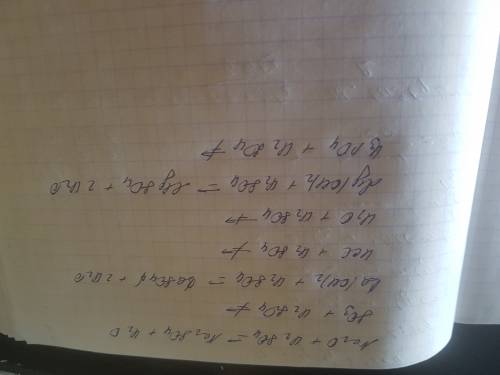 Na2O + H2SO4 = Na2SO4 + H2O
SO3 + H2SO4 ↛
Ba(OH)2 + H2SO4 = BaSO4↓ + 2H2O
HCl + H2SO4 ↛
H2O + H2SO4 ↛
Mg(OH)2 + H2SO4 = MgSO4 + 2H2O
H3PO4 + H2SO4 ↛